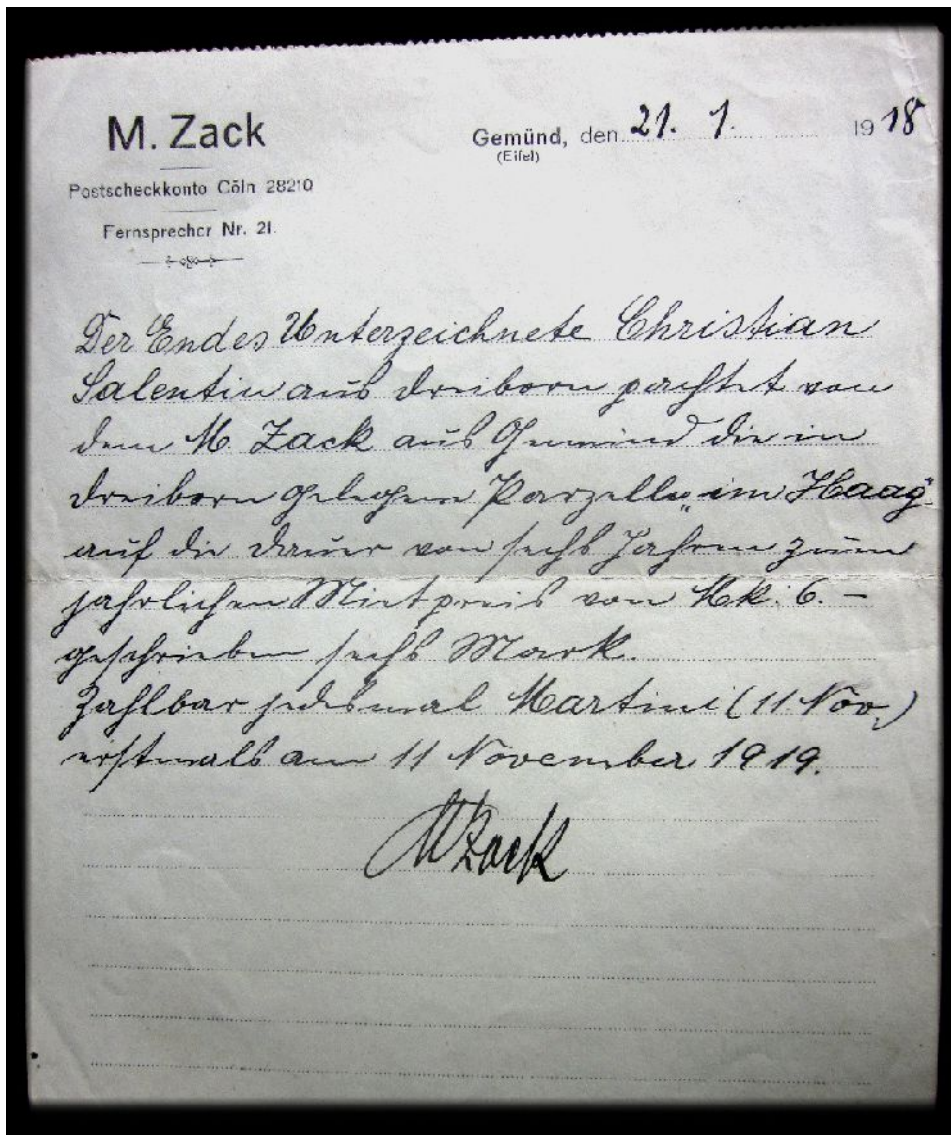 M. Zack
Gemünd, den 21. 1. 1918
(Eifel)
Postscheckkonto Cöln 28210
Fernsprecher Nr. 21.
Der Endes Unterzeichnete Christian
Salentin aus Dreiborn pachtet von
dem M. Zack aus Gemünd die in
Dreiborn gelegene Parzelle „im Haag“
auf die Dauer von sechs Jahren zum
jahrlichen Mietpreis von Mk. 6. –
geschrieben sechs Mark.
Zahlbar jedesmal Martini (11 Nov.)
erstmals am 11 November 1919.
M Zack